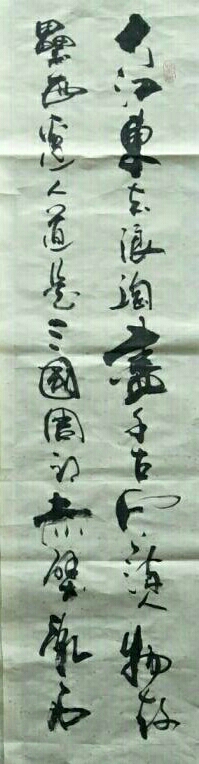 大江東去浪淘盡千古風流人物故
壘西邊人道是三國周郎赤壁亂石